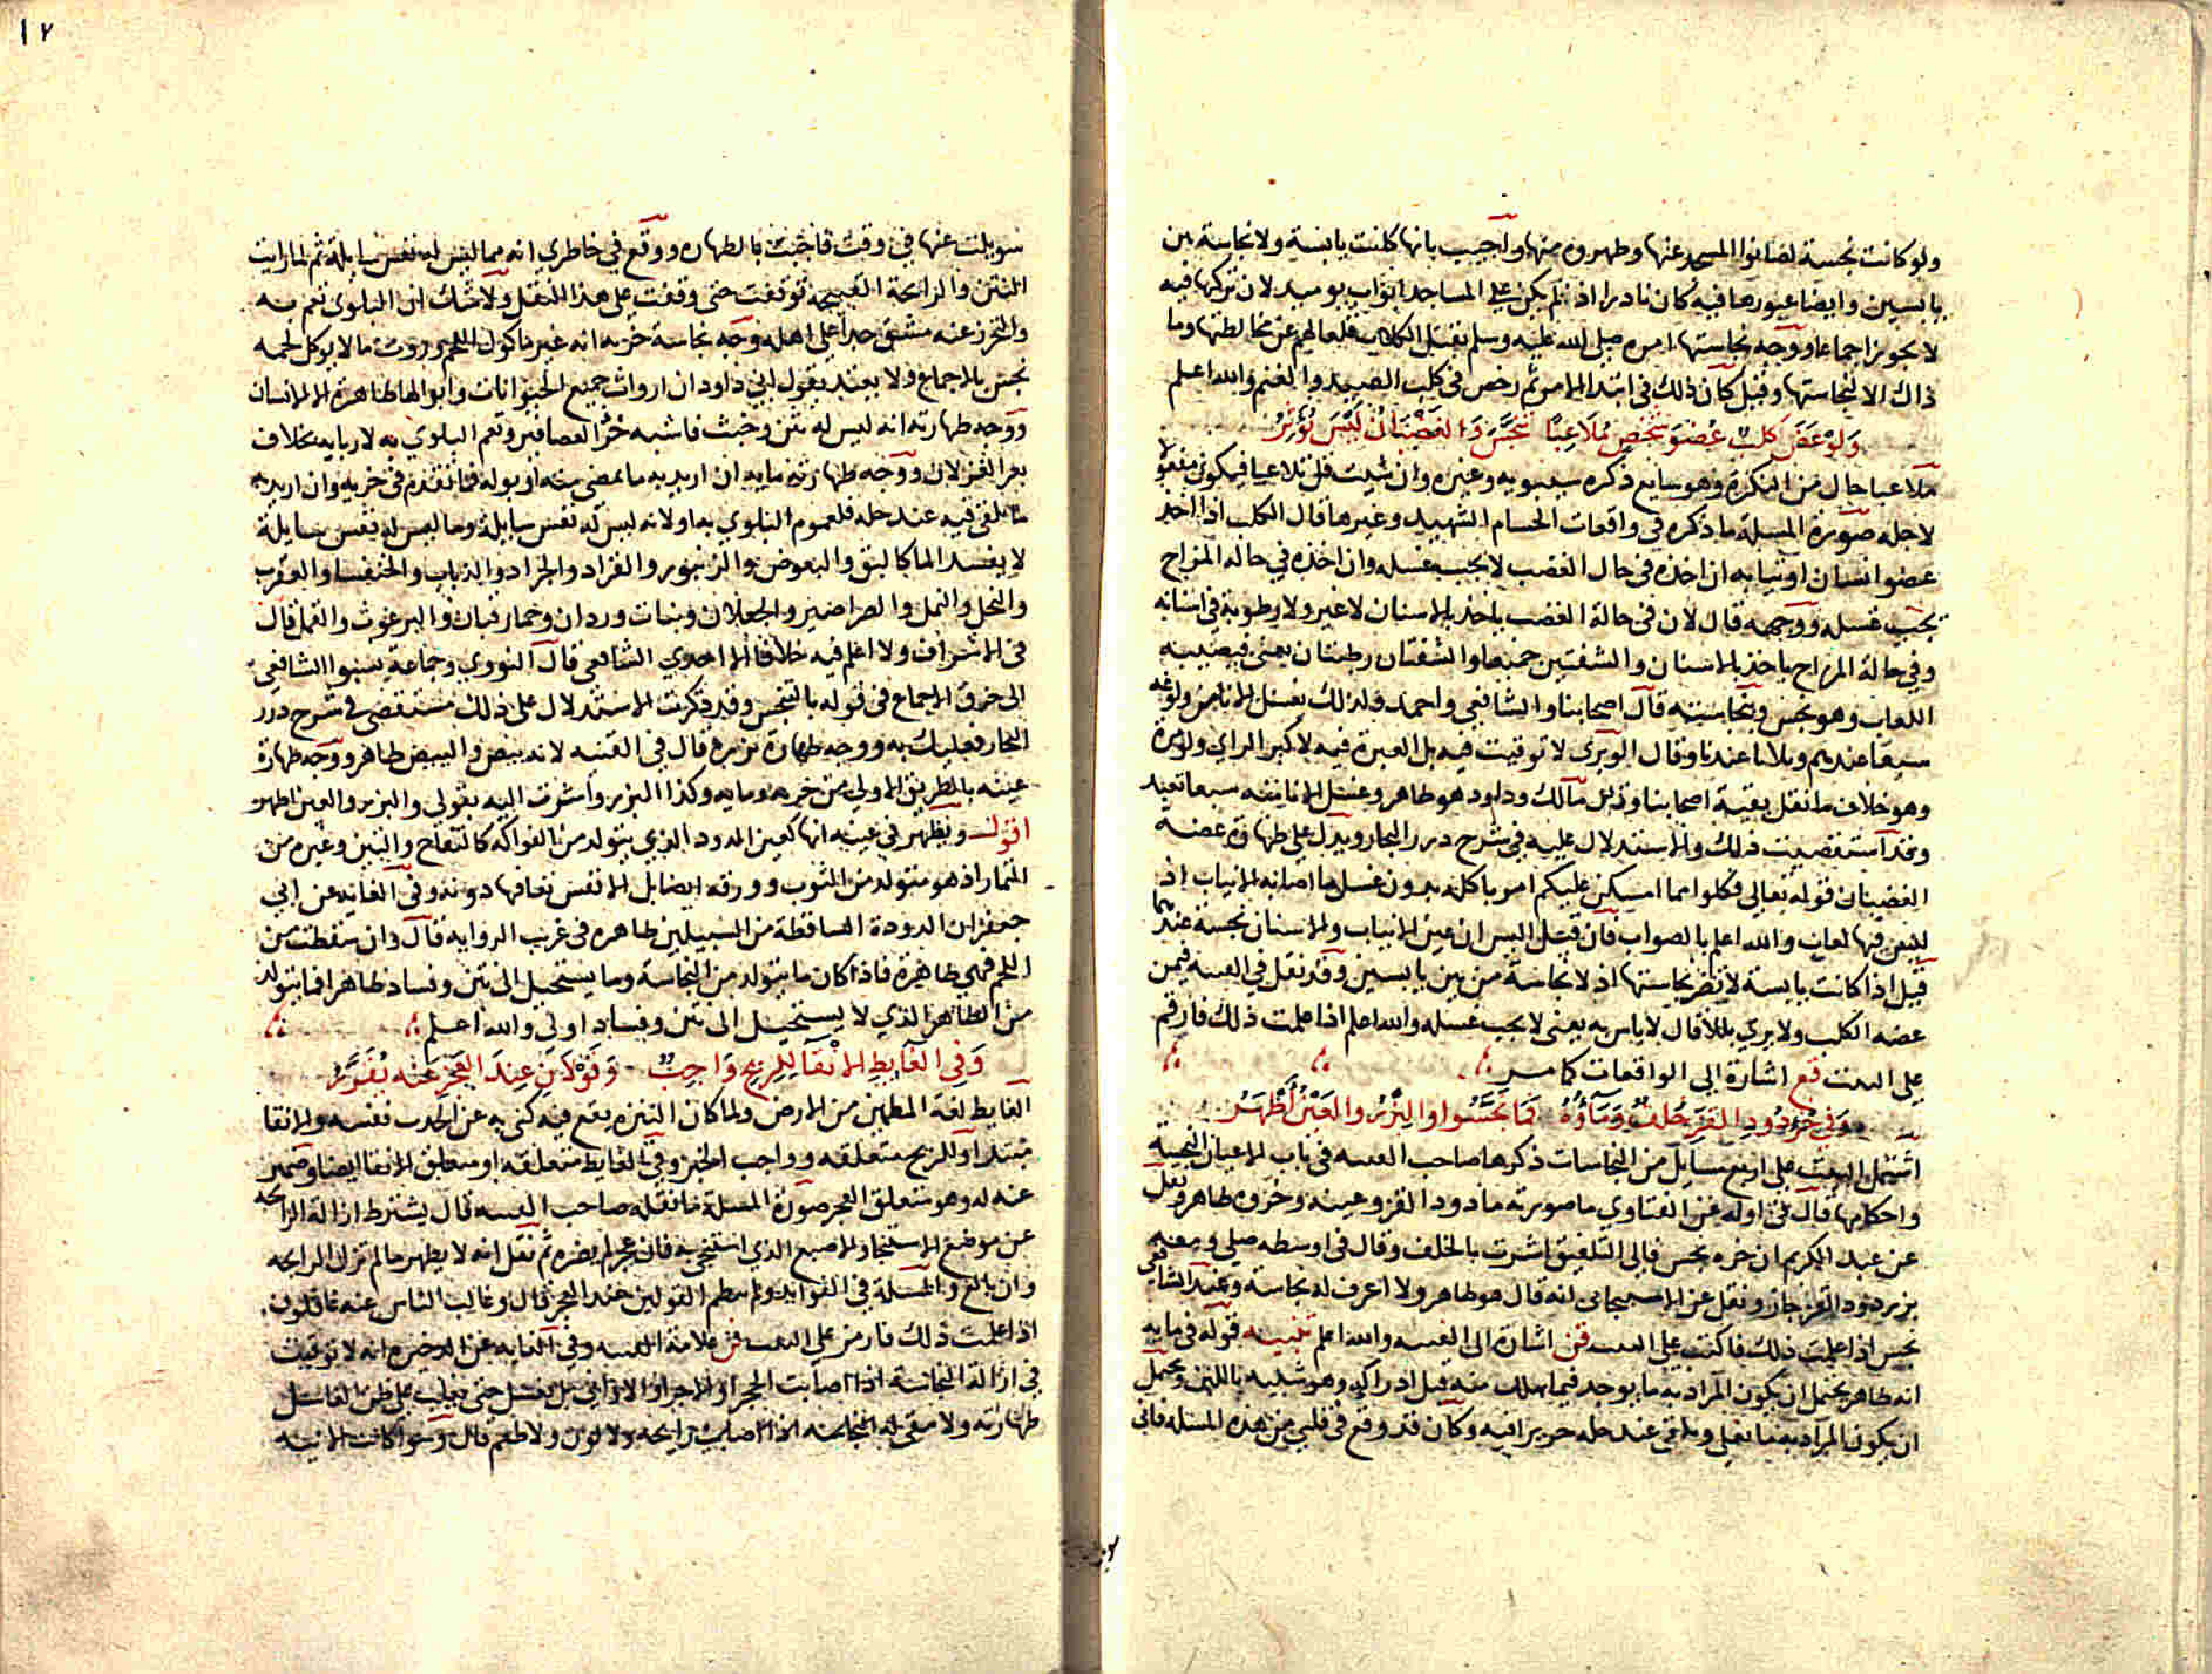 ولو كانت نجسة لصانوا المسجد عنها وطهروه منها واجيب بانها كانت يابسة ولا نجاسة بين
يابسين وايضا عبورها فيه كان نادرا اذ لم يكن على المساجد ابواب يوميد لان تركها فيه
لا يجوز اجماعا ووجه نجاستها امره صلى الله عليه وسلم بقتل الكلاب قلعا لهم عن مخالطتها وما
ذاك الا لنجاستها وقيل كان ذلك في ابتداء الامر ثم رخص في كلب الصيد والغنم والله اعلم
وَلوْ عَضَّ كلبٌ عُضوَ شخصٍ مُلاعِبًا تنجَّسَ والغضبَانُ ليْسَ يُؤثِّرُ
ملاعبا حال من النكرة وهو سايغ ذكره سيبويه وغيره وان شيت قل تلاعبا فيكون مفعولا
لاجله صورة المسلة ما ذكره في واقعات الحسام الشهيد وغيرها قال الكلب اذا اخذ
عضو انسان او ثيابه ان اخذه في حال الغضب لا يجب غسله وان اخذه في حاله المزاح
يجب غسله ووجهه قال لان في حالة الغضب ياخذ بالاسنان لا غير ولا رطوبة في اسنانه
وفي حالة المزاح ياخذ بالاسنان والشفتين جميعا والشفتان رطبتان يعنى فيصيبه
اللعاب وهو نجس وبنجاسته قال اصحابنا والشافعي واحمد ولذلك يغسل الانا من ولوغه
سبعا عندهم وثلاثا عندنا وقال الوبرى لا توقيت فيه بل العبرة فيه لاكبر الراي ولو مرة
وهو خلاف ما نقل بقية اصحابنا وقال مالك وداود هو طاهر وغسل الانا منه سبعا تعبد
وقد استقصيت ذلك والاستدلال عليه في شرح درر البحار ويدل على طهارة عضه
الغضبان قوله تعالى فكلوا مما امسكن عليكم امر باكله بدون غسل ما اصابه الانياب اذ
ليس فيها لعاب والله اعلم بالصواب فان قيل اليس ان عين الانياب والاسنان نجسة عندكم
قيل اذا كانت يابسة لا تضر نجاستها اذ لا نجاسة من بين يابسين وقد نقل في القنيه فيمن
عضه الكلب ولا يرى بللا قال لا باس به يعنى لا يجب غسله والله اعلم اذا علمت ذلك فارقم
على البيت قع اشارة الى الواقعات كما مر
وَفي خُرْءِ دُودِ القَزِّ خُلفٌ وَمَآؤُهُ فمَا نجَّسُوا والبَزْرُ والعَيْنُ أَطْهَرُ
اشتمل البيت على اربع مسايل من النجاسات ذكرها صاحب القنيه في باب الاعيان النجسة
واحكامها قال في اوله عن الفتاوي ما صورته ما دود القز وعينه وخروه طاهر ونقل
عن عبد الكريم ان خره نجس فالى التلفيق اشرت بالخلف وقال في اوسطه صلى ومعه
بزر دود القز جاز ونقل عن الاسبيجابي انه قال هو طاهر ولا اعرف له نجاسة وعند الشافعي
نجس اذا علمت ذلك فاكتب على البيت قن اشارة الى القنيه والله اعلم تنبيه قوله في مايه
انه طاهر يحتمل ان يكون المراد به ما يوجد فيما يهلك منه قبل ادراكه وهو شبيه باللبن ويحتمل
ان يكون المراد به ما يغلى ويلقى عند حله حريرا فيه وكان قد وقع في قلبي من هذه المسله فاني
سويلت عنها في وقت فاجبت بالطهاره ووقع في خاطري انه مما ليس له نفس سايلة ثم لما رايت
النتن والرايحة القبيحه توقفت حتى وقفت على هذا النقل ولا شك ان البلوى تعم به
والتحرز عنه مشق جدا على اهله وجه نجاسة خريه انه غير ماكول اللحم وروث ما لا يوكل لحمه
نجس بالاجماع ولا يعتد بقول ابي داود ان ارواث جميع الحيوانات وابوالها طاهرة الا الانسان
ووجه طهارته انه ليس له نتن وخبث فاشبه خرء العصافير وتعم البلوي به لاربابه بخلاف
بعر الغزلان ووجه طهارته مايه ان اريد به ما يمضى منه او بوله فما تقدم في خريه وان اريد به
ما يلقى فيه عند حله فلعموم البلوي بها ولانه ليس له نفس سايلة وما ليس له نفس سايلة
لا يفسد الما كالبق والبعوض والزنبور والقراد والجراد والذباب والخنفسا والعقرب
والنحل والنمل والصراصير والجعلان وبنات وردان وحمار قبان والبرغوث والقمل قال
في الاشراف ولا اعلم فيه خلافا الا احدي الشافعي قال النووي وجماعة نسبوا الشافعي
الى خرق الاجماع في قوله بالتنجس وقد ذكرت الاستدلال على ذلك مستقصى في شرح درر
البحار فعليك به ووجه طهارة بزره قال في القنيه لانه بيض والبيض طاهر ووجه طهارة
عينه بالطريق الاولى من خريه ومايه وكذا البزر واشرت اليه بقولى والبزر والعين اطهر
اقول ويظهر في عينه انها كعين الدود الذي يتولد من الفواكه كالتفاح والتين وغيره من
الثمار اذ هو متولد من التوب وورقه ايضا بل الانفس تعافها دونه وفي الغايه عن ابي
جعفر ان الدودة الساقطة من السبيلين طاهره في غريب الروايه قال وان سقطت من
اللحم فهي طاهرة فاذا كان ما يتولد من النجاسة وما يستحيل الى نتن وفساد طاهرا فما يتولد
من الطاهر الذي لا يستحيل الى نتن وفساد اولى والله اعلم
وَفي الغَايِطِ الإنْقَا للِرِّيحِ وَاجِبٌ وَقَوْلَانِ عِندَ العَجْزِ عَنْهُ يُقَرَّرُ
الغايط لغة المطمين من الارض ولما كان التنزه يقع فيه كنى به عن الحدث نفسه والانقا
مبتدا وللريح متعلقه وواجب الخبر وفي الغايط متعلقه او متعلق الانقا ايضا وضمير
عنه له وهو متعلق العجز صورة المسلة ما نقله صاحب القنيه قال يشترط ازالة الرايحه
عن موضع الاستنجا والاصبع الذي استنجى به فان عجز لم يضره ثم نقل انه لا يطهر ما لم تزل الرايحه
وان بالغ والمسلة في الفوايد ولم ينظم القولين عند العجز قال وغالب الناس عنه غافلون
اذا علمت ذلك فارمز على البيت قن علامة القنيه وفي الغايه عن الدخيره انه لا توقيت
في ازالة النجاسة اذا اصابت الحجر او الاجر او الاواني بل يغسل حتى يغلب على ظن الغاسل
طهارته ولا يبقى له النجاسة اذا اصابت رايحه ولا لون ولا طعم قال وسوا كانت الانيه